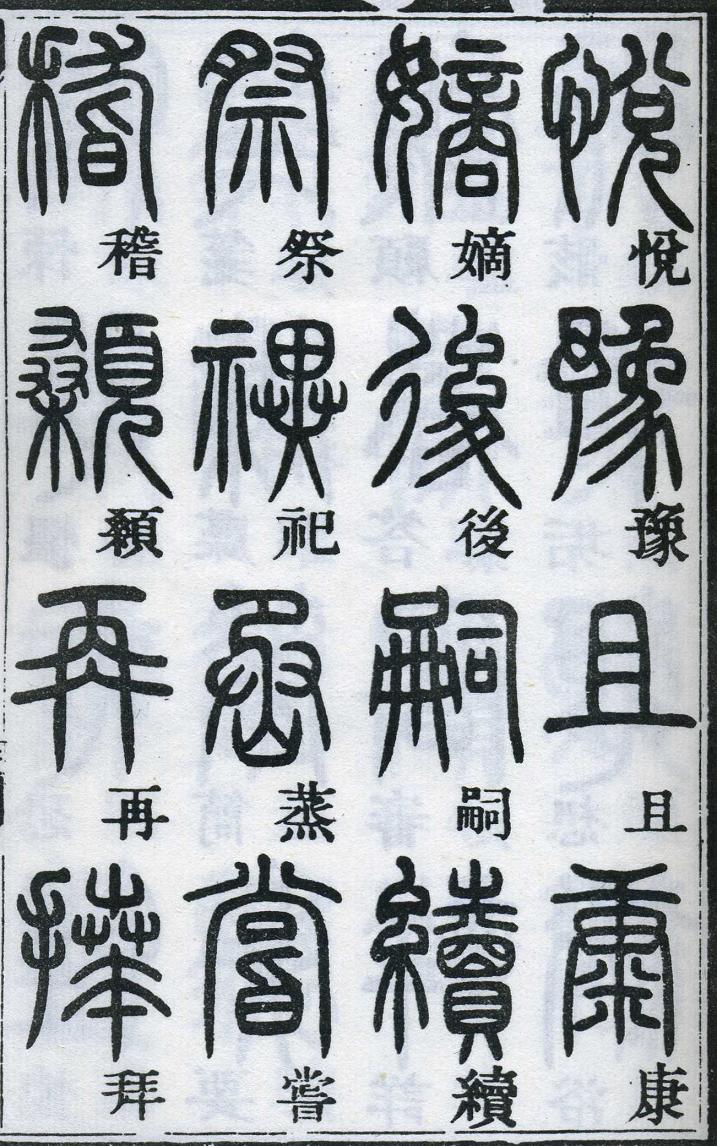 悅豫且康
嫡後嗣續
祭祀蒸嘗
稽顙再拜